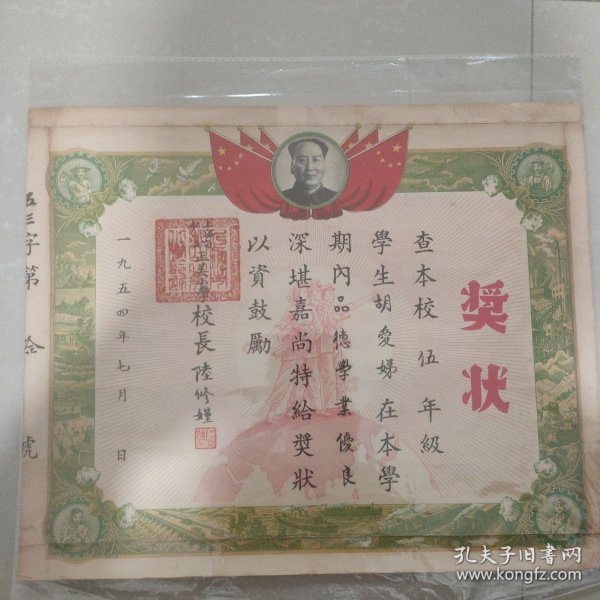 奬状
查本校伍年級
學生胡愛娣在本學
期內品德學業優良
深堪嘉尚特給奬狀
以資鼓勵
上海市私立正美小學校長陸修
一九五四年七月 日
五三字第 拾 號
孔夫子旧书网
www.kongfz.com